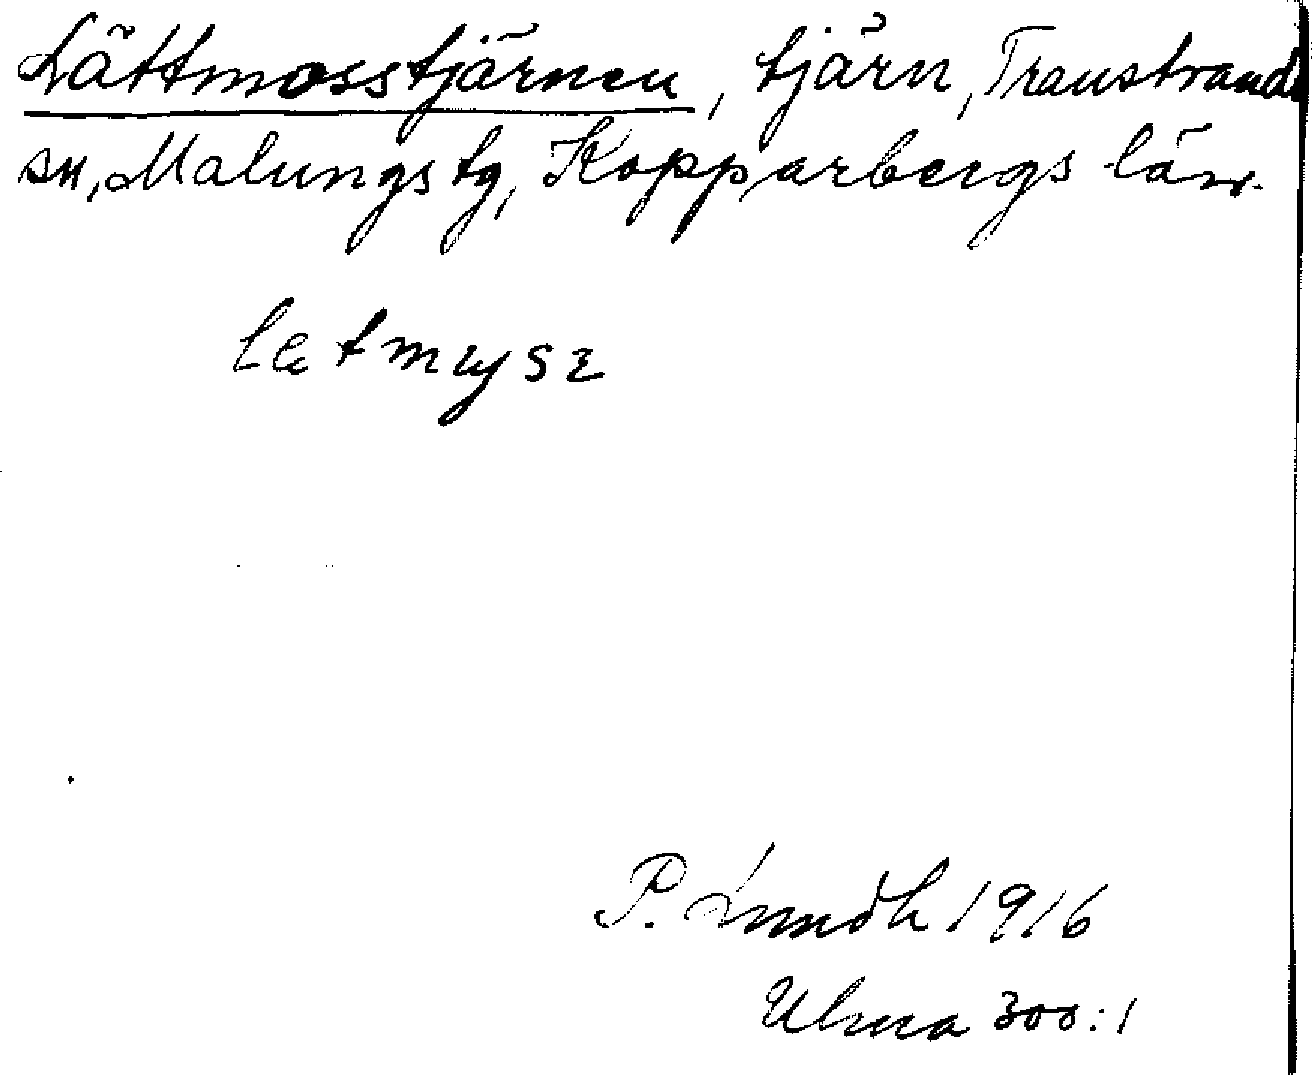 Lättmosstjärnen, tjärn, Transtrands
sn, Malungs tg, Kopparbergs län.
P. Lundh 1916
Ulma 300:1